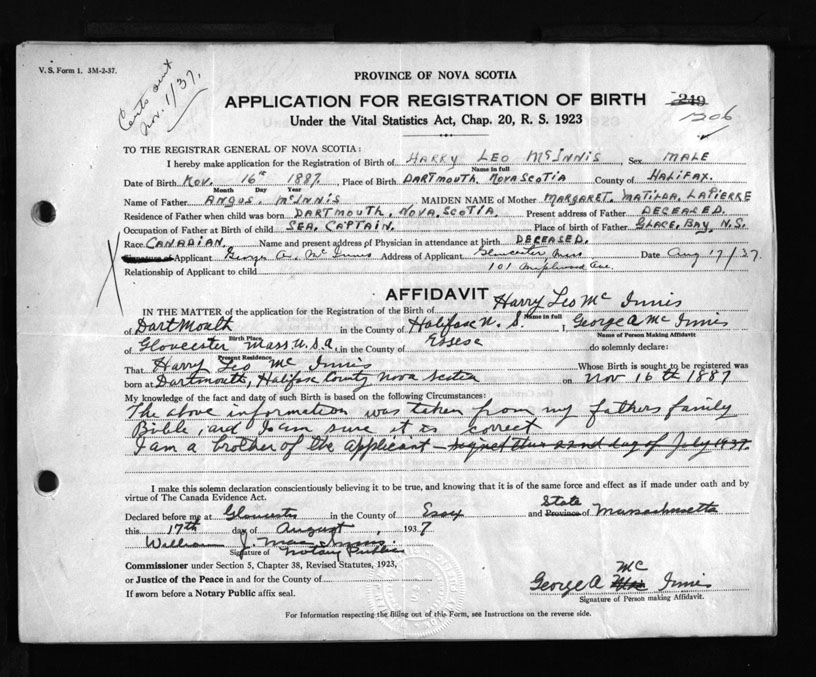 V. S. Form 1. 3M-2-37.
Nov. 1/37.
PROVINCE OF NOVA SCOTIA
APPLICATION FOR REGISTRATION OF BIRTH
249
1206
Under the Vital Statistics Act, Chap. 20, R. S. 1923
TO THE REGISTRAR GENERAL OF NOVA SCOTIA:
I hereby make application for the Registration of Birth of HARRY LEO McINNIS Sex MALE
Name in full
Date of Birth Nov. 16th 1887. Place of Birth DARTMOUTH, NOVA SCOTIA County of HALIFAX.
Month Day Year
Name of Father ANGUS. McINNIS MAIDEN NAME of Mother MARGARET. MATILDA. LAPIERRE
Residence of Father when child was born DARTMOUTH, NOVA.SCOTIA. Present address of Father DECEASED.
Occupation of Father at Birth of child SEA. CAPTAIN. Place of birth of Father GLACE. BAY, N.S.
Race CANADIAN. Name and present address of Physician in attendance at birth DECEASED.
Signature of Applicant George A. Mc Innis Address of Applicant Gloucester, Mass Date Aug 17/37.
Relationship of Applicant to child 101 Maplewood Ave.
AFFIDAVIT
IN THE MATTER of the application for the Registration of the Birth of Harry Leo Mc Innis
Name in full
of DartMouth in the County of Halifax N. S. I, George A Mc Innis
Birth Place Name of Person Making Affidavit
of Gloucester Mass. U.S.A. in the County of Essex do solemnly declare:
Present Residence
That Harry Leo Mc Innis Whose Birth is sought to be registered was
born at Dartmouth, Halifax County Nova Scotia on Nov 16th 1887
My knowledge of the fact and date of such Birth is based on the following Circumstances:
The above information was taken from my fathers family
Bible, and I am sure it is correct
I am a brother of the applicant – signed this 22nd day of July 1937.
I make this solemn declaration conscientiously believing it to be true, and knowing that it is of the same force and effect as if made under oath and by
virtue of The Canada Evidence Act.
Declared before me at Gloucester in the County of Essex and Province of State Massachusetts
this 17th day of August, 1937
William J. MacInnis.
Signature of Notary Public
Commissioner under Section 5, Chapter 38, Revised Statutes, 1923,
or Justice of the Peace in and for the County of
If sworn before a Notary Public affix seal.
George A Mac Mc Innis
Signature of Person making Affidavit.
For Information respecting the filing out of this Form, see Instructions on the reverse side.